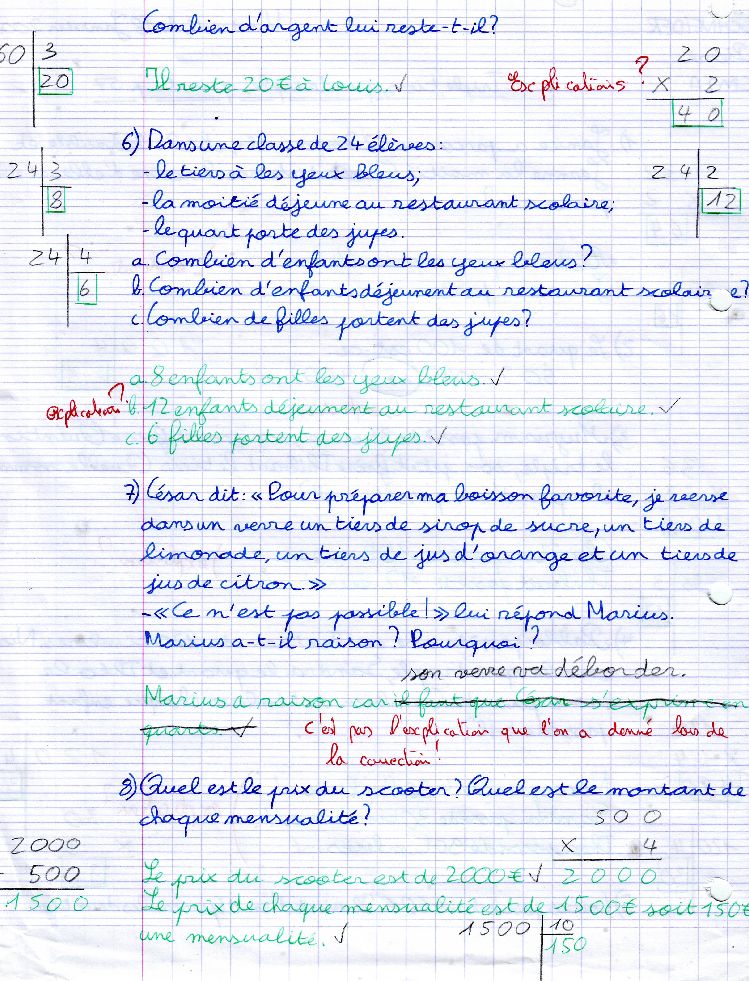 Combien d'argent lui reste-t-il?
60 3
20
Il reste 20€ à Louis. ✓
Explications ?
20
X 2
40
6) Dans une classe de 24 élèves:
24 3
8
- le tiers à les yeux bleus;
24 2
12
- la moitié déjeune au restaurant scolaire;
- le quart porte des jupes.
24 4
6
a. Combien d'enfants ont les yeux bleus?
b. Combien d'enfants déjeunent au restaurant scolaire?
c. Combien de filles portent des jupes?
a. 8 enfants ont les yeux bleus. ✓
explication?
b. 12 enfants déjeunent au restaurant scolaire. ✓
c. 6 filles portent des jupes. ✓
7) César dit: «Pour préparer ma boisson favorite, je verse
dans un verre un tiers de sirop de sucre, un tiers de
limonade, un tiers de jus d'orange et un tiers de
jus de citron.»
-«Ce n'est pas possible!» lui répond Marius.
Marius a-t-il raison? Pourquoi?
son verre va déborder.
Marius a raison car il faut que César s'exprime en
quarts. ✓
c'est pas l'explication que l'on a donné lors de
la correction!
8) Quel est le prix du scooter? Quel est le montant de
chaque mensualité?
500
X 4
2000
2000
- 500
1500
Le prix du scooter est de 2000€ ✓
Le prix de chaque mensualité est de 1500€ soit 150€
une mensualité. ✓
1500 10
150